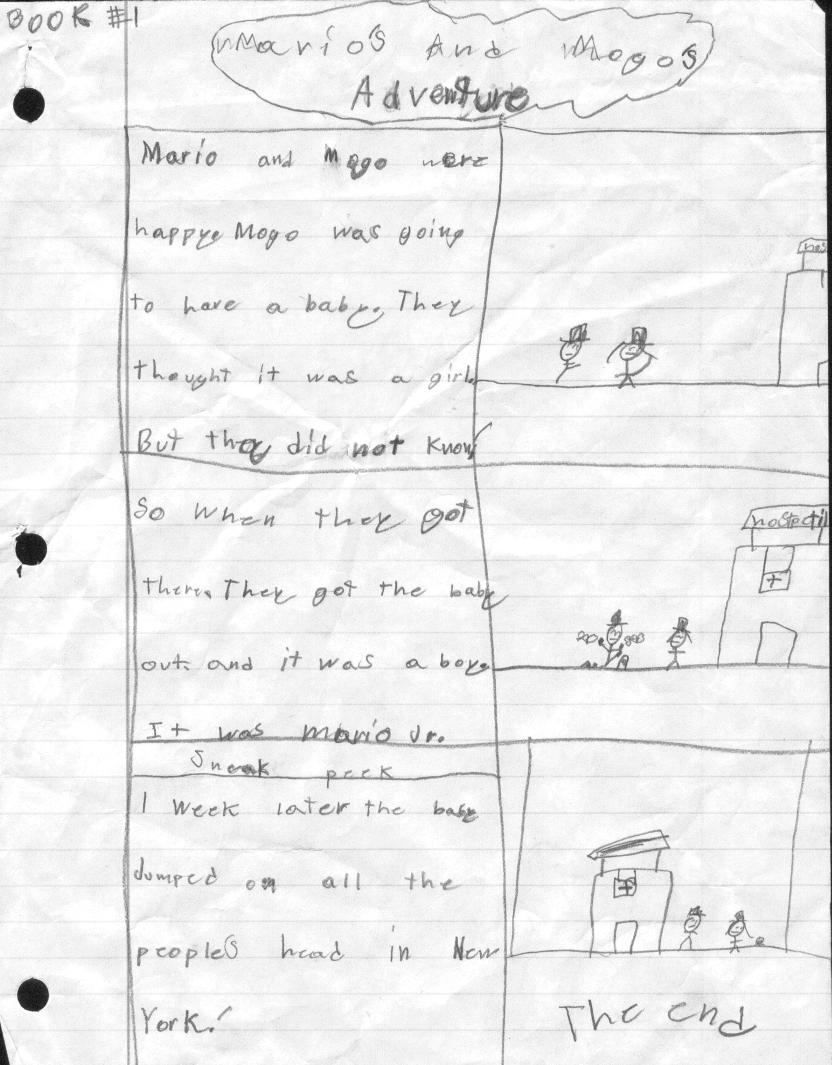 BOOK #1
Mario's And Mogo's
Adventure
Mario and Mogo were
happy. Mogo was going
to have a baby. They
thought it was a girl.
But they did not know
hos
So when they got
there. They got the baby
out. and it was a boy.
It was Mario Jr.
hospectil
Sneak peek
1 week later the baby
jumped on all the
people's head in New
York!
The end